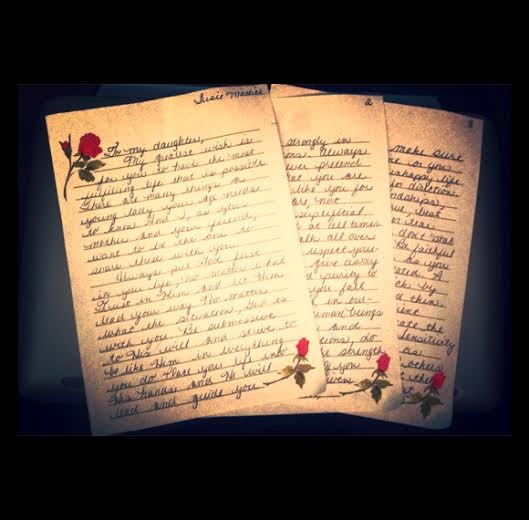 Susie
To my daughter,
My greatest wish is
for you to have the most
fulfilling life that is possible
There are many things a
young lady your age needs
to know and I, as your
mother and your friend,
want to be the one to
share them with you.
Always put God first
in your life, no matter what
Trust in Him and let Him
lead your way. No matter
what the situation, God is
with you. Be submissive
to His will and strive to
be like Him in everything
you do. Place your life into
His hands and He will
lead and guide you
2
strongly in
ons. Always
ever pretend
at you are
like you for
are, not
superficial,
at all times.
alk all over
espect your
give away
d purity to
you fall
in our-
uman beings
and
tions, do
e strength
you
3
make sure
me for you
unhappy life
for direction
dships
ve, best
or tear
don't
Be faithful
as you
ated. A
ck by
d them
ate the
ensitivity
as
others